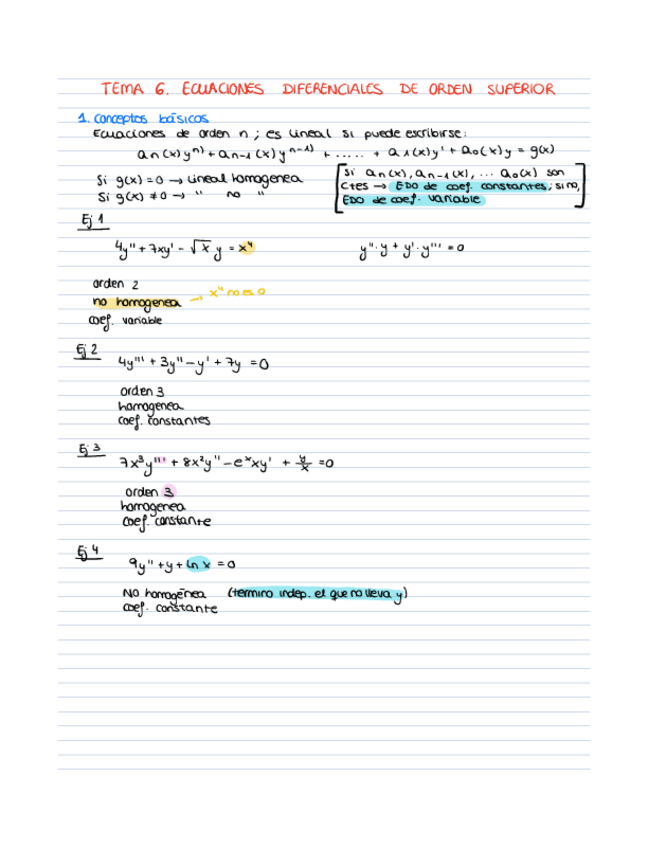 TEMA 6. ECUACIONES DIFERENCIALES DE ORDEN SUPERIOR
1. Conceptos básicos
Ecuaciones de orden n ; es lineal si puede escribirse:
an(x)y^n) + an-1(x)y^n-1) + ..... + a1(x)y' + a0(x)y = g(x)
Si g(x) = 0 → Lineal homogenea
Si g(x) ≠ 0 → " no "
Si an(x), an-1(x), ... a0(x) son
ctes → EDO de coef. constantes; si no,
EDO de coef. variable
Ej 1
4y'' + 7xy' - √x y = x⁴
y''·y + y'·y''' = 0
orden 2
no homogenea → x⁴ no es 0
coef. variable
Ej 2
4y''' + 3y'' - y' + 7y = 0
orden 3
homogenea
coef. constantes
Ej 3
7x³y''' + 8x²y'' - e^x xy' + y/x = 0
orden 3
homogenea
coef. constante
Ej 4
9y'' + y + ln x = 0
NO homogenea (termino indep. el que no lleva y)
coef. constante